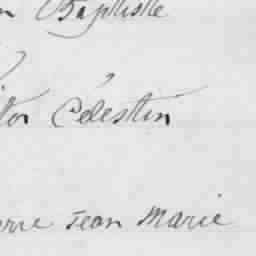 n Baptiste
tor Célestin
erre Jean Marie